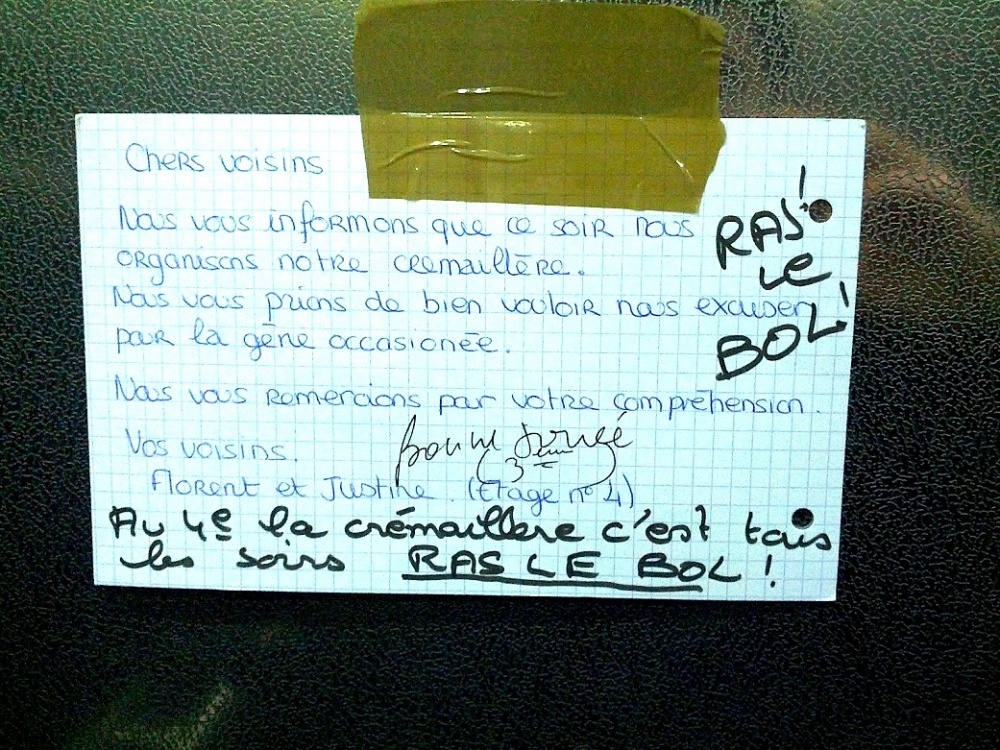 Chers voisins
Nous vous informons que ce soir nous
organisons notre cremaillère.
Nous vous prions de bien vouloir nous excuser
par la gêne occasionée.
Nous vous remercions par votre compréhension.
Vos voisins.
Florent et Justine. (Etage n° 4)
Bonne soirée
(3eme)
RAS
le
BOL!
Au 4e la crémaillere c'est tous
les soirs RAS LE BOL!